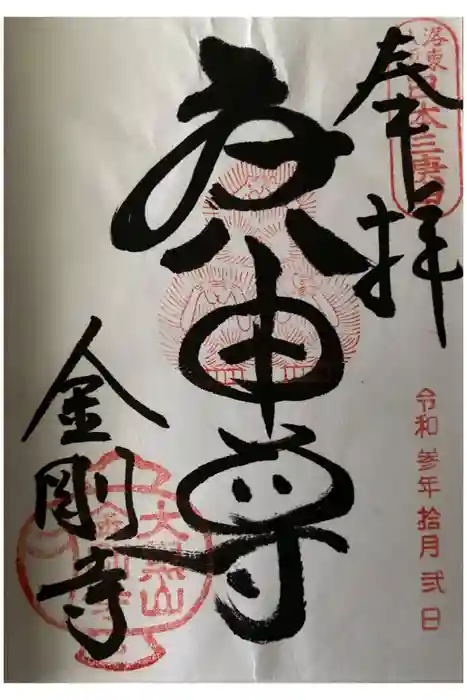 奉拝
洛東
日本三庚申
令和参年拾月弐日
庚申尊
金剛寺